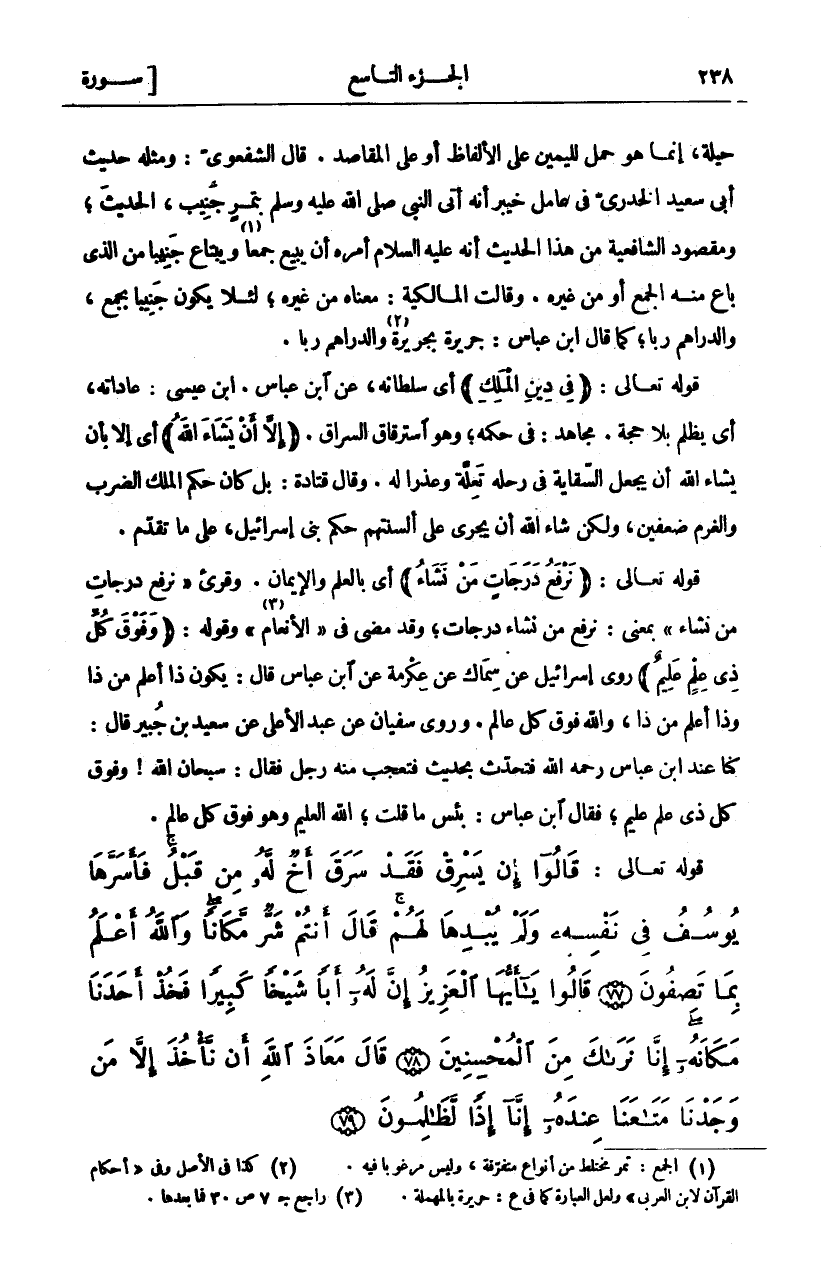 ٢٣٨ الجـزء التـاسع [سـورة
حيلة، إنمـا هو حمل لليمين على الألفاظ أو على المقاصد . قال الشفعوىّ : ومثله حديث
أبى سعيد الخدرىّ فى عامل خيبر أنه أتى النبى صلى الله عليه وسلم بتمرٍ جَنِيب ، الحديثَ ؛
ومقصود الشافعية من هذا الحديث أنه عليه السلام أمره أن يبيع جمعا (١) ويبتاع جَنِيبا من الذى
باع منـه الجمع أو من غيره . وقالت المـالكية : معناه من غيره ؛ لئـلا يكون جَنِيبا بجمع ،
والدراهم ربا؛ كما قال ابن عباس : جريرة بجريرة (٢) والدراهم ربا .
قوله تعـالى : ﴿ فِى دِينِ الْمَلِكِ ﴾ أى سلطانه، عن ٱبن عباس . ابن عيسى : عاداته،
أى يظلم بلا حجة . مجاهد : فى حكمه؛ وهو ٱسترقاق السراق . ﴿ إِلَّا أَنْ يَشَاءَ اللهُ ﴾ أى إلا بأن
يشاء الله أن يجعل السّقاية فى رحله تَعِلَّة وعذرا له . وقال قتادة : بل كان حكم الملك الضرب
والغرم ضعفين، ولكن شاء الله أن يجرى على ألسنتهم حكم بنى إسرائيل، على ما تقدّم .
قوله تعـالى : ﴿ نَرْفَعُ دَرَجَاتٍ مَنْ نَشَاءُ ﴾ أى بالعلم والإيمان . وقرئ « نرفع درجاتِ
من نشاء » بمعنى : نرفع من نشاء درجات؛ وقد مضى فى « الأنعام (٣) » وقوله : ﴿ وَفَوْقَ كُلِّ
ذِى عِلْمٍ عَلِيمٌ ﴾ روى إسرائيل عن سِمَاك عن عِكْرمة عن ٱبن عباس قال : يكون ذا أعلم من ذا
وذا أعلم من ذا ، والله فوق كل عالم . وروى سفيان عن عبد الأعلى عن سعيد بن جُبير قال :
كنا عند ابن عباس رحمه الله فتحدّث بحديث فتعجب منه رجل فقال : سبحان الله ! وفوق
كل ذى علم عليم ؛ فقال ٱبن عباس : بئس ما قلت ؛ الله العليم وهو فوق كل عالم .
قوله تعـالى : قَالُوٓا إِن يَسْرِقْ فَقَدْ سَرَقَ أَخٌ لَّهُۥ مِن قَبْلُ ۚ فَأَسَرَّهَا
يُوسُفُ فِى نَفْسِهِۦ وَلَمْ يُبْدِهَا لَهُمْ ۚ قَالَ أَنتُمْ شَرٌّ مَّكَانًا ۖ وَٱللَّهُ أَعْلَمُ
بِمَا تَصِفُونَ ﴿٧٧﴾ قَالُوا يَـٰٓأَيُّهَا ٱلْعَزِيزُ إِنَّ لَهُۥٓ أَبًا شَيْخًا كَبِيرًا فَخُذْ أَحَدَنَا
مَكَانَهُۥٓ ۖ إِنَّا نَرَىٰكَ مِنَ ٱلْمُحْسِنِينَ ﴿٧٨﴾ قَالَ مَعَاذَ ٱللَّهِ أَن نَّأْخُذَ إِلَّا مَن
وَجَدْنَا مَتَـٰعَنَا عِندَهُۥٓ إِنَّآ إِذًا لَّظَـٰلِمُونَ ﴿٧٩﴾
(١) الجمع : تمر مختلط من أنواع متفرّقة ، وليس مرغوبا فيه . (٢) كذا فى الأصل وفى « أحكام
القرآن لابن العربى » ولعل العبارة كما فى ع : حريرة بالمهملة . (٣) راجع جـ ٧ ص ٣٠ فما بعدها .